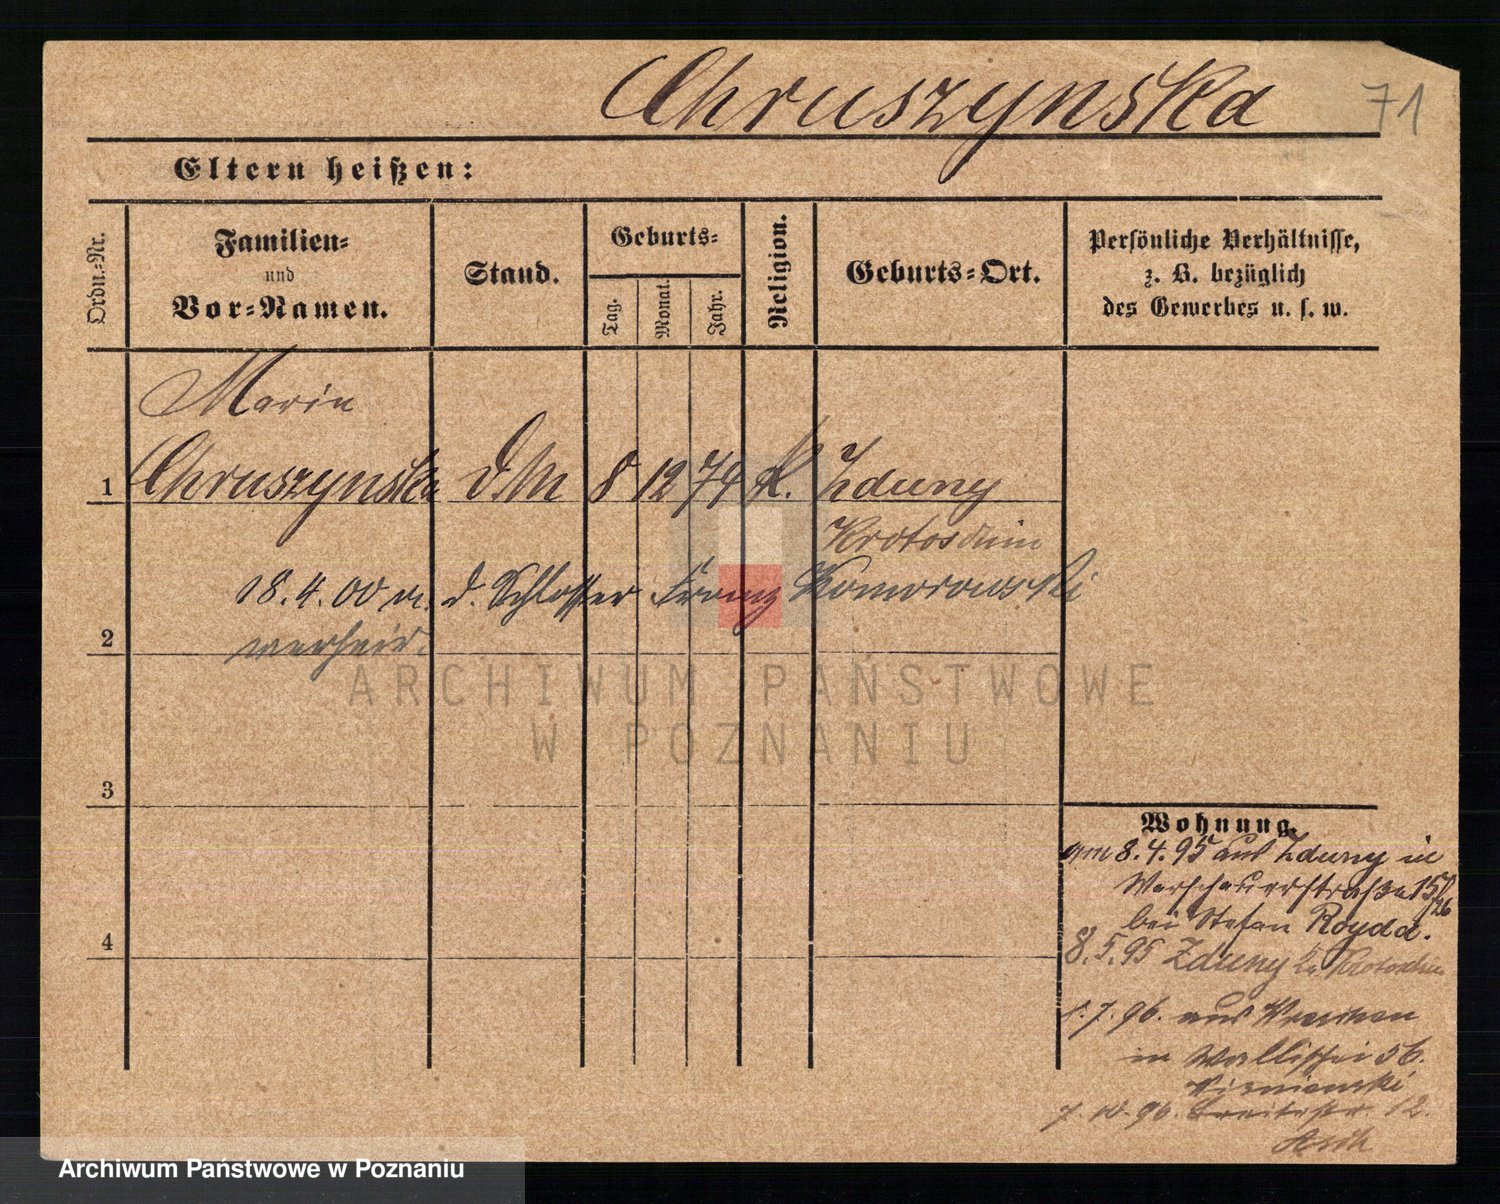 Chruszynska 71
Eltern heißen:
Ordn.-Nr.
Familien-
und
Vor-Namen.
Stand.
Geburts-
Tag.
Monat.
Jahr.
Religion.
Geburts-Ort.
Persönliche Verhältnisse,
z. B. bezüglich
des Gewerbes u. s. w.
Maria
1 Chruszynska D.M 8 12 74 k. Zduny
Krotoschin
18.4.00 m. d. Schlosser Franz Komorowski
2
verheir.
ARCHIWUM PAŃSTWOWE
W POZNANIU
3
Wohnung.
am 8.4.95 aus Zduny in
Warschauerstraße 15
bei Stefan Royda.
4
8.5.95 Zduny Kr Krotoschin
1.7.96. aus
in Wallischei 56.
7.10.96. Breitestr. 12.
Archiwum Państwowe w Poznaniu